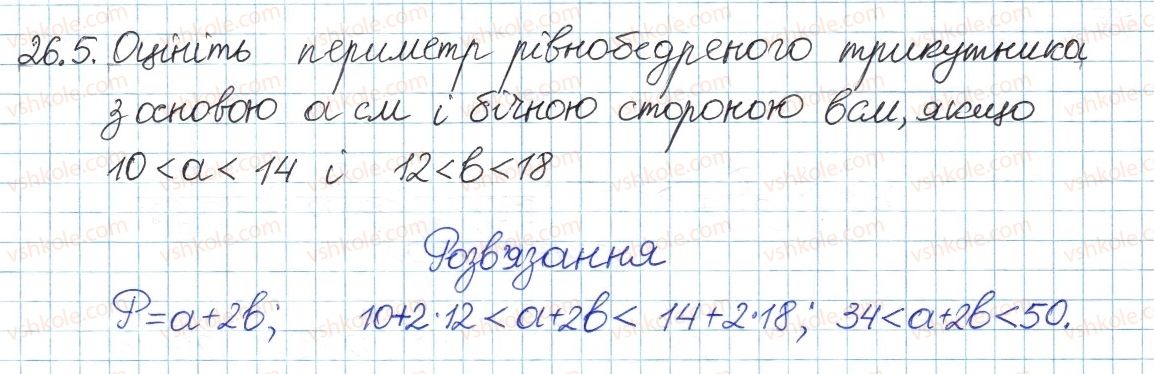 26.5. Оцініть периметр рівнобедреного трикутника
з основою a см і бічною стороною b см, якщо
10 < a < 14 і 12 < b < 18
Розв'язання
P = a + 2b; 10 + 2 · 12 < a + 2b < 14 + 2 · 18; 34 < a + 2b < 50.